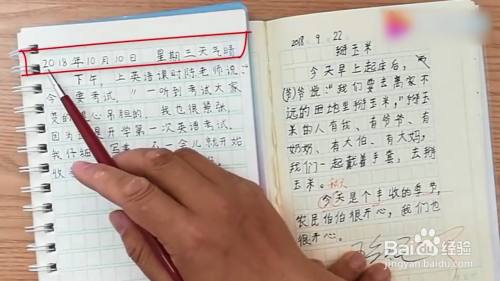 2018年10月10日 星期三天气晴
下午，上英语课时陈老师说：
今 要考试，”一听到考试大家
变的 心吊胆的，我也很紧张，
因为 是开学第一次英语考试。
我仔细 写 不一会儿就开始
收
2018.9.22
掰玉米
今天早上起床后，
(爷)爷说：“我们要去离家不
远的田地里掰玉米，”掰玉
米的人有我、有爷爷、有
奶奶、有大伯、有大妈，
我们一起戴着手套，去掰
玉米。
今天是个丰收的季节，
农民伯伯很开心，我们也
很开心。
Baidu经验
jingyan.baidu.com